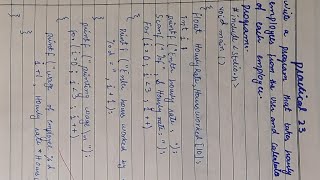 practical 23
write a program that takes hourly
employees from the user and calculate
of each employee.
program:
# include <stdio.h>
void main ()
{
float Hourly Rate, Hours worked [10];
Int i;
printf ("Enter hourly rate: ");
Scanf ("%f", & Hourly rate);
for (i=0; i<3; i++)
{
printf ("Enter hours worked by
i++
}
printf (" printing wage \n");
for (i=0; i<3; i++)
{
printf ("wage of employee %d
i+1, Hourly rate * Hours